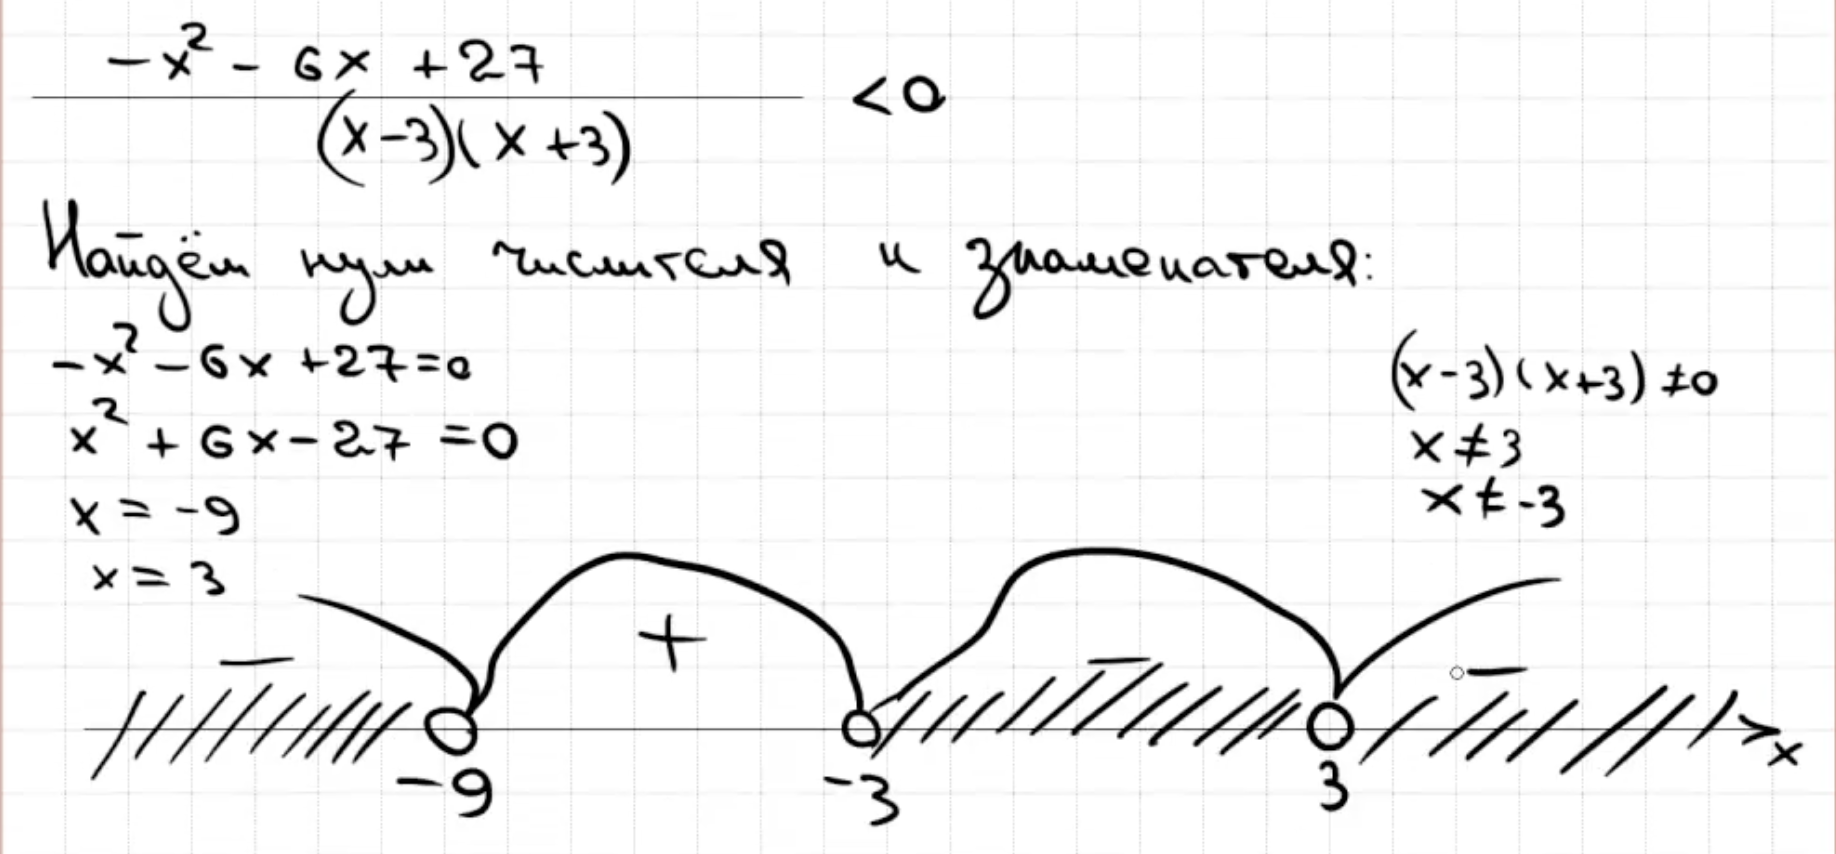 -x² - 6x + 27
(x-3)(x+3)
<0
Найдём нули числителя и знаменателя:
-x² - 6x + 27 = 0
x² + 6x - 27 = 0
x = -9
x = 3
(x-3)(x+3) ≠ 0
x ≠ 3
x ≠ -3
- + - -
-9 -3 3 x